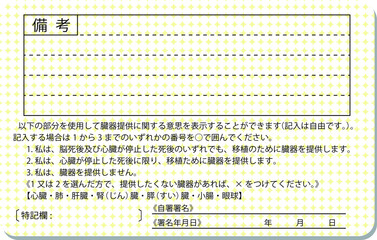 備 考
以下の部分を使用して臓器提供に関する意思を表示することができます(記入は自由です。)。
記入する場合は1から3までのいずれかの番号を○で囲んでください。
1. 私は、脳死後及び心臓が停止した死後のいずれでも、移植のために臓器を提供します。
2. 私は、心臓が停止した死後に限り、移植のために臓器を提供します。
3. 私は、臓器を提供しません。
《1又は2を選んだ方で、提供したくない臓器があれば、×をつけてください。》
【心臓・肺・肝臓・腎(じん)臓・膵(すい)臓・小腸・眼球】
〔特記欄: 〕
《自署署名》
《署名年月日》 年 月 日